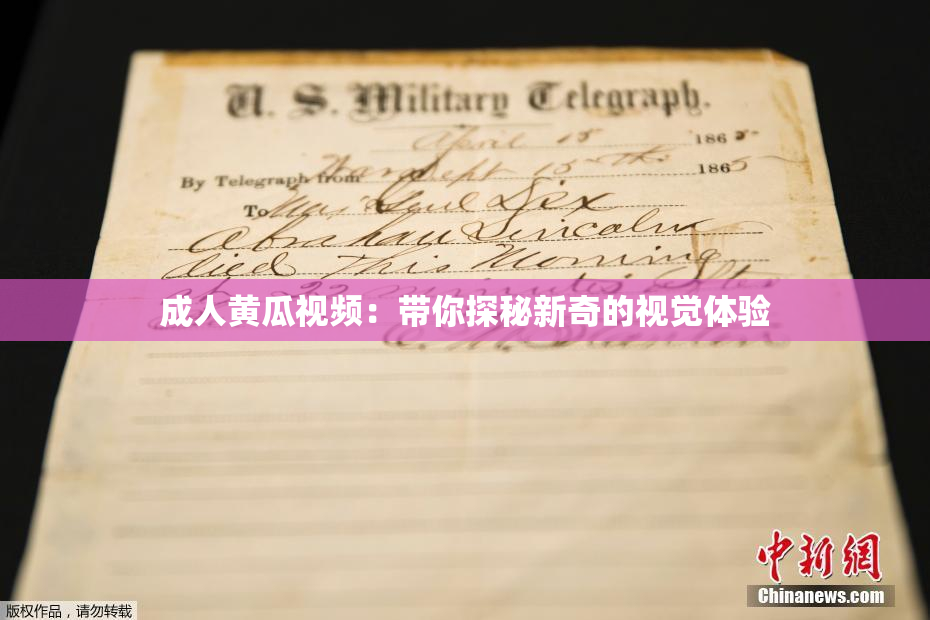 U. S. Military Telegraph.
April 15 1865.
By Telegraph from War Dept 15th 1865
To Maj Genl Dix
Abraham Lincoln
died This Morning
at 22 minutes after
成人黄瓜视频：带你探秘新奇的视觉体验
E. M. Stanton
中新网
Chinanews.com
版权作品，请勿转载